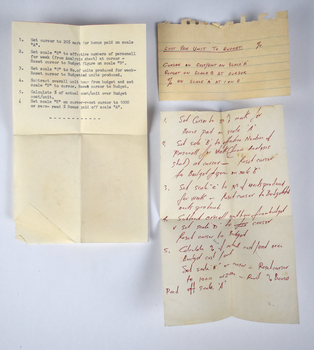 1. Set cursor to 20% mark for bonus paid on scale
"A".
2. Set scale "B" to effective numbers of personnel
for week (from Analysis sheet) at cursor -
Reset cursor to Budget figure on scale "B".
3. Set scale "C" to No. of units produced for week-
Reset cursor to Budgeted units produced.
4. Subtract overall unit over from budget and set
scale "D" to cursor. Reset cursor to Budget.
5. Calculate % of actual cost/unit over Budget
cost/unit.
6. Set scale "B" on cursor-reset cursor to 1000
or zero- read % Bonus paid off scale "A".
COST PER UNIT TO BUDGET. %
CURSOR ON COST/UNIT ON SCALE A
BUDGET ON SCALE B AT CURSOR
% ON SCALE A AT 100 B
1. Set Cursor to % mark for
Bonus paid on scale 'A'.
2. Set scale B, to effective Number of
Personnel for Week (from Analysis
Sheet) at cursor — Reset cursor
to Budget figure on scale B
3. Set scale 'C' to No of units produced
for week — Reset cursor to Budgeted
units produced.
4. Subtract overall
Set scale 'D' to cursor
Reset cursor to Budget
5. Calculate % of actual cost/unit over
Budget cost/unit
Set scale 'B' on cursor — Reset cursor
to 1000 or zero — Read % Bonus
Paid off scale 'A'